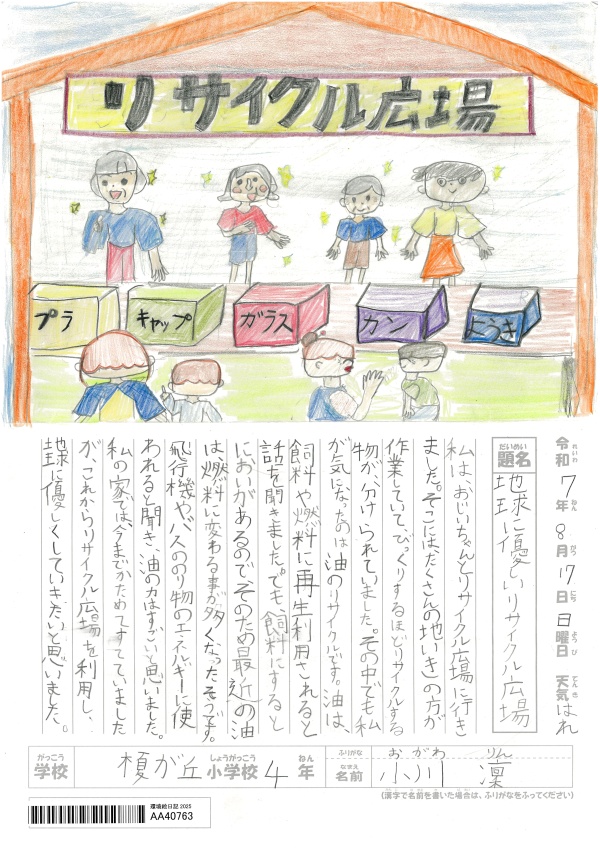 リサイクル広場
プラ
キャップ
ガラス
カン
ようき
令和7年8月17日日曜日 天気はれ
れいわ ねん がつ にち ようび てんき
だいめい
題名
地球に優しいリサイクル広場
私は、おじいちゃんとリサイクル広場に行き
ました。そこにはたくさんの地いきの方が
作業していて、びっくりするほどリサイクルする
物が、分けられていました。その中でも私
が気になったのは油のリサイクルです。油は、
飼料や燃料に再生利用されると
話を聞きました。でも、飼料にすると
においがあるのでそのため最近の油
は、燃料に変わる事が多くなったそうです。
飛行機やバスののり物のエネルギーに使
われると聞き、油の力はすごいと思いました。
私の家では、今までかためてすてていました
が、これからリサイクル広場を利用し、
地球に優しくしていきたいと思いました。
がっこう
学校
榎が丘
しょうがっこう
小学校
4
ねん
年
ふりがな
なまえ
名前
おがわ りん
小川 凜
(漢字で名前を書いた場合は、ふりがなをふってください)
環境絵日記 2025
AA40763